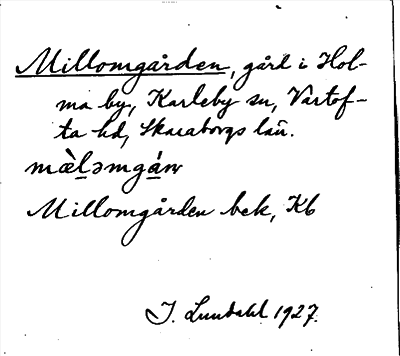 Millomgården, gård i Hol-
ma by, Karleby sn, Vartof-
ta hd, Skaraborgs län.
mæ̀ləmgán
Millomgården bek, Kb
I. Lundahl 1927.